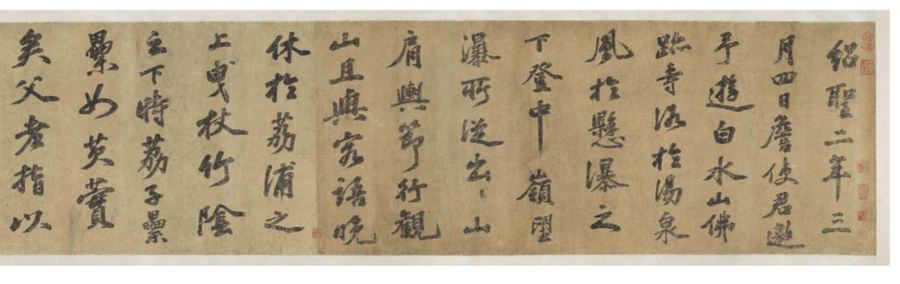 紹聖二年三
月四日詹使君邀
予遊白水山佛
跡寺浴於湯泉
風於懸瀑之
下登中嶺望
瀑所從出〻山
肩輿節行觀
山且與客語晚
休於荔浦之
上曳杖竹陰
之下時荔子纍
纍如芡實
矣父老指以